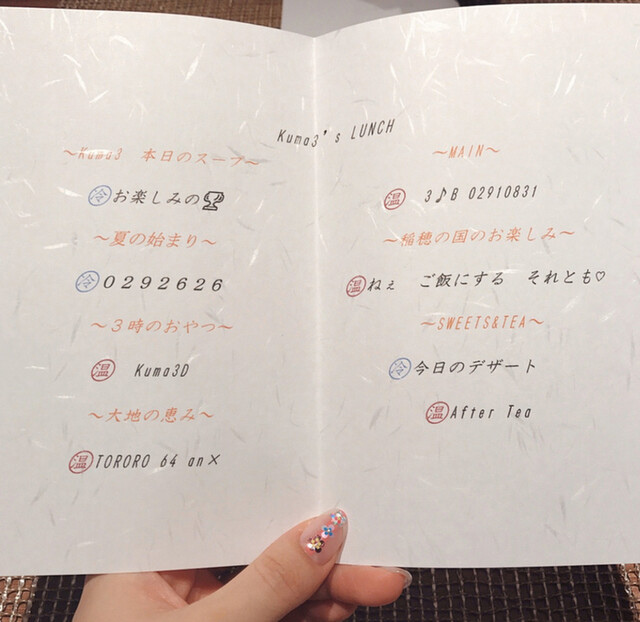 Kuma3's LUNCH
～Kuma3 本日のスープ～
冷 お楽しみの
～夏の始まり～
冷 0292626
～３時のおやつ～
温 Kuma3D
～大地の恵み～
温 TORORO 64 an×
～MAIN～
温 3♪B 02910831
～稲穂の国のお楽しみ～
温 ねぇ ご飯にする それとも♡
～SWEETS&TEA～
冷 今日のデザート
温 After Tea